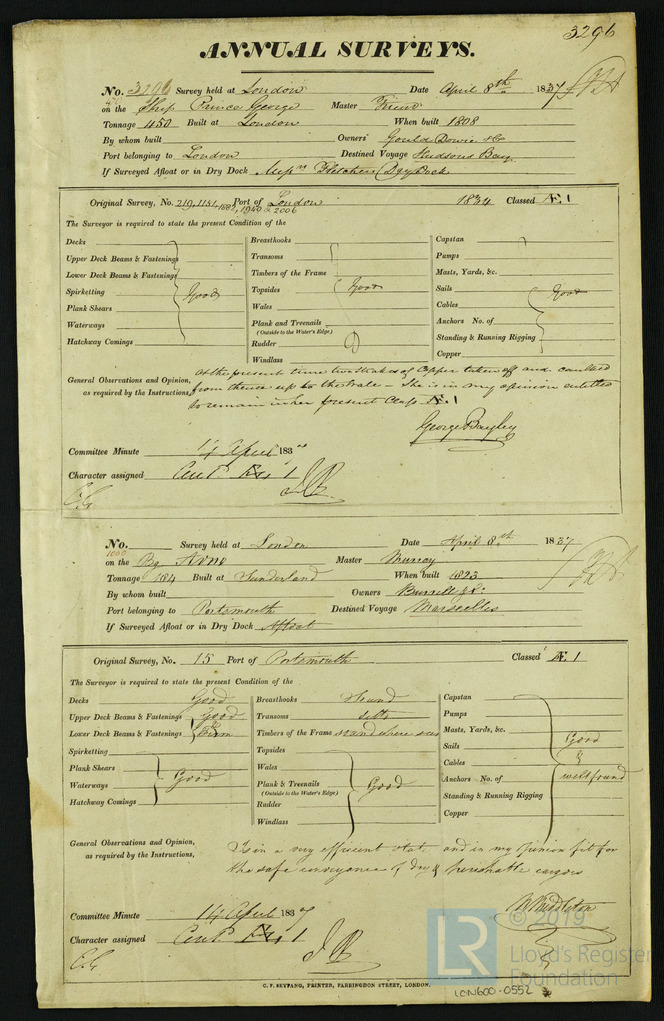 3296
ANNUAL SURVEYS.
No. 3296 Survey held at London Date April 8th 1837
on the Ship Prince George Master
Tonnage 450 Built at London When built 1808
By whom built Owners Gould Dowie & Co
Port belonging to London Destined Voyage Hudsons Bay
If Surveyed Afloat or in Dry Dock Messrs Fletchers Dry Dock
Original Survey, No. 219, 1141, 1940 & 2006 Port of London 1834 Classed Æ 1
The Surveyor is required to state the present Condition of the
Decks
Upper Deck Beams & Fastenings
Lower Deck Beams & Fastenings
Spirketting Good
Plank Shears
Waterways
Hatchway Comings
Breasthooks
Transoms
Timbers of the Frame
Topsides Good
Wales
Plank and Treenails
(Outside to the Water's Edge)
Rudder
Windlass
Capstan
Pumps
Masts, Yards, &c.
Sails Good
Cables
Anchors No. of
Standing & Running Rigging
Copper
General Observations and Opinion, as required by the Instructions,
At the present time two strakes of Copper taken off and caulked
from thence up to the rales - She is in my opinion entitled
to remain in her present Class Æ 1
George Bayley
Committee Minute 14 April 183
Character assigned Cont. Æ 1
No. Survey held at London Date April 8th 1837
on the Bg Arno Master Murray
Tonnage 184 Built at Sunderland When built 1823
By whom built Owners Burrell & Co
Port belonging to Portsmouth Destined Voyage Marseilles
If Surveyed Afloat or in Dry Dock Afloat
Original Survey, No. 15 Port of Portsmouth Classed Æ 1
The Surveyor is required to state the present Condition of the
Decks Good
Upper Deck Beams & Fastenings Good
Lower Deck Beams & Fastenings Firm
Spirketting
Plank Shears
Waterways Good
Hatchway Comings
Breasthooks Sound
Transoms ditto
Timbers of the Frame sound where seen
Topsides
Wales
Plank & Treenails Good
(Outside to the Water's Edge)
Rudder
Windlass
Capstan
Pumps
Masts, Yards, &c.
Sails Good
Cables &
Anchors No. of well found
Standing & Running Rigging
Copper
General Observations and Opinion, as required by the Instructions,
Is in a very efficient state and in my opinion fit for
the safe conveyance of dry & perishable cargoes
W Middleton
Committee Minute 14 April 1837
Character assigned Cont. Æ 1
C. F. SEYFANG, PRINTER, FARRINGDON STREET, LONDON.
LON600-0552
LR
© 2019
Lloyd's Register
Foundation